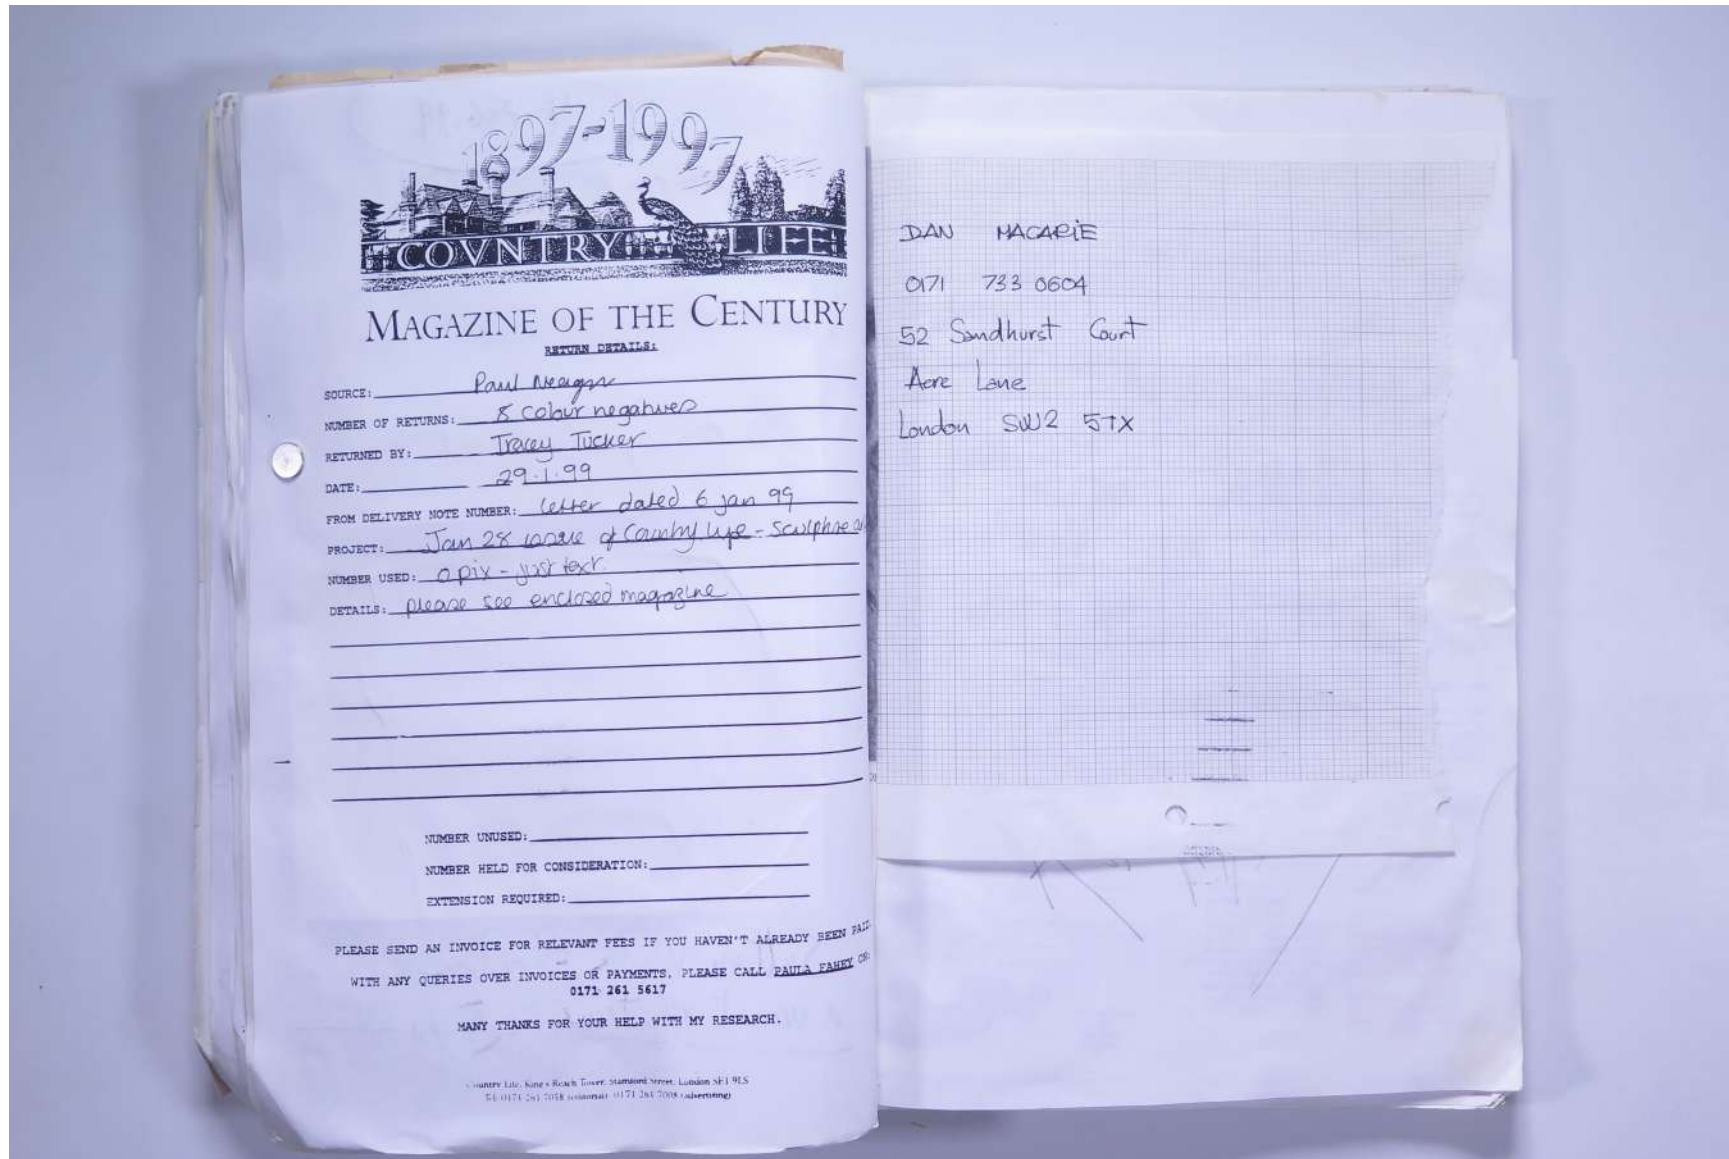 1897-1997
COVNTRY LIFE
MAGAZINE OF THE CENTURY
RETURN DETAILS:
SOURCE: Paul Neagu
NUMBER OF RETURNS: 8 colour negatives
RETURNED BY: Tracey Tucker
DATE: 29.1.99
FROM DELIVERY NOTE NUMBER: letter dated 6 jan 99
PROJECT: Jan 28 issue of Country Life - Sculpture
NUMBER USED: 0 pix - just text.
DETAILS: please see enclosed magazine
NUMBER UNUSED:
NUMBER HELD FOR CONSIDERATION:
EXTENSION REQUIRED:
PLEASE SEND AN INVOICE FOR RELEVANT FEES IF YOU HAVEN'T ALREADY BEEN PAID.
WITH ANY QUERIES OVER INVOICES OR PAYMENTS, PLEASE CALL PAULA FAHEY ON:
0171 261 5617
MANY THANKS FOR YOUR HELP WITH MY RESEARCH.
Country Life, King's Reach Tower, Stamford Street, London SE1 9LS
Tel: 0171 261 7058 (editorial) 0171 261 7008 (advertising)
DAN MACARIE
0171 733 0604
52 Sandhurst Court
Acre Lane
London SW2 5TX